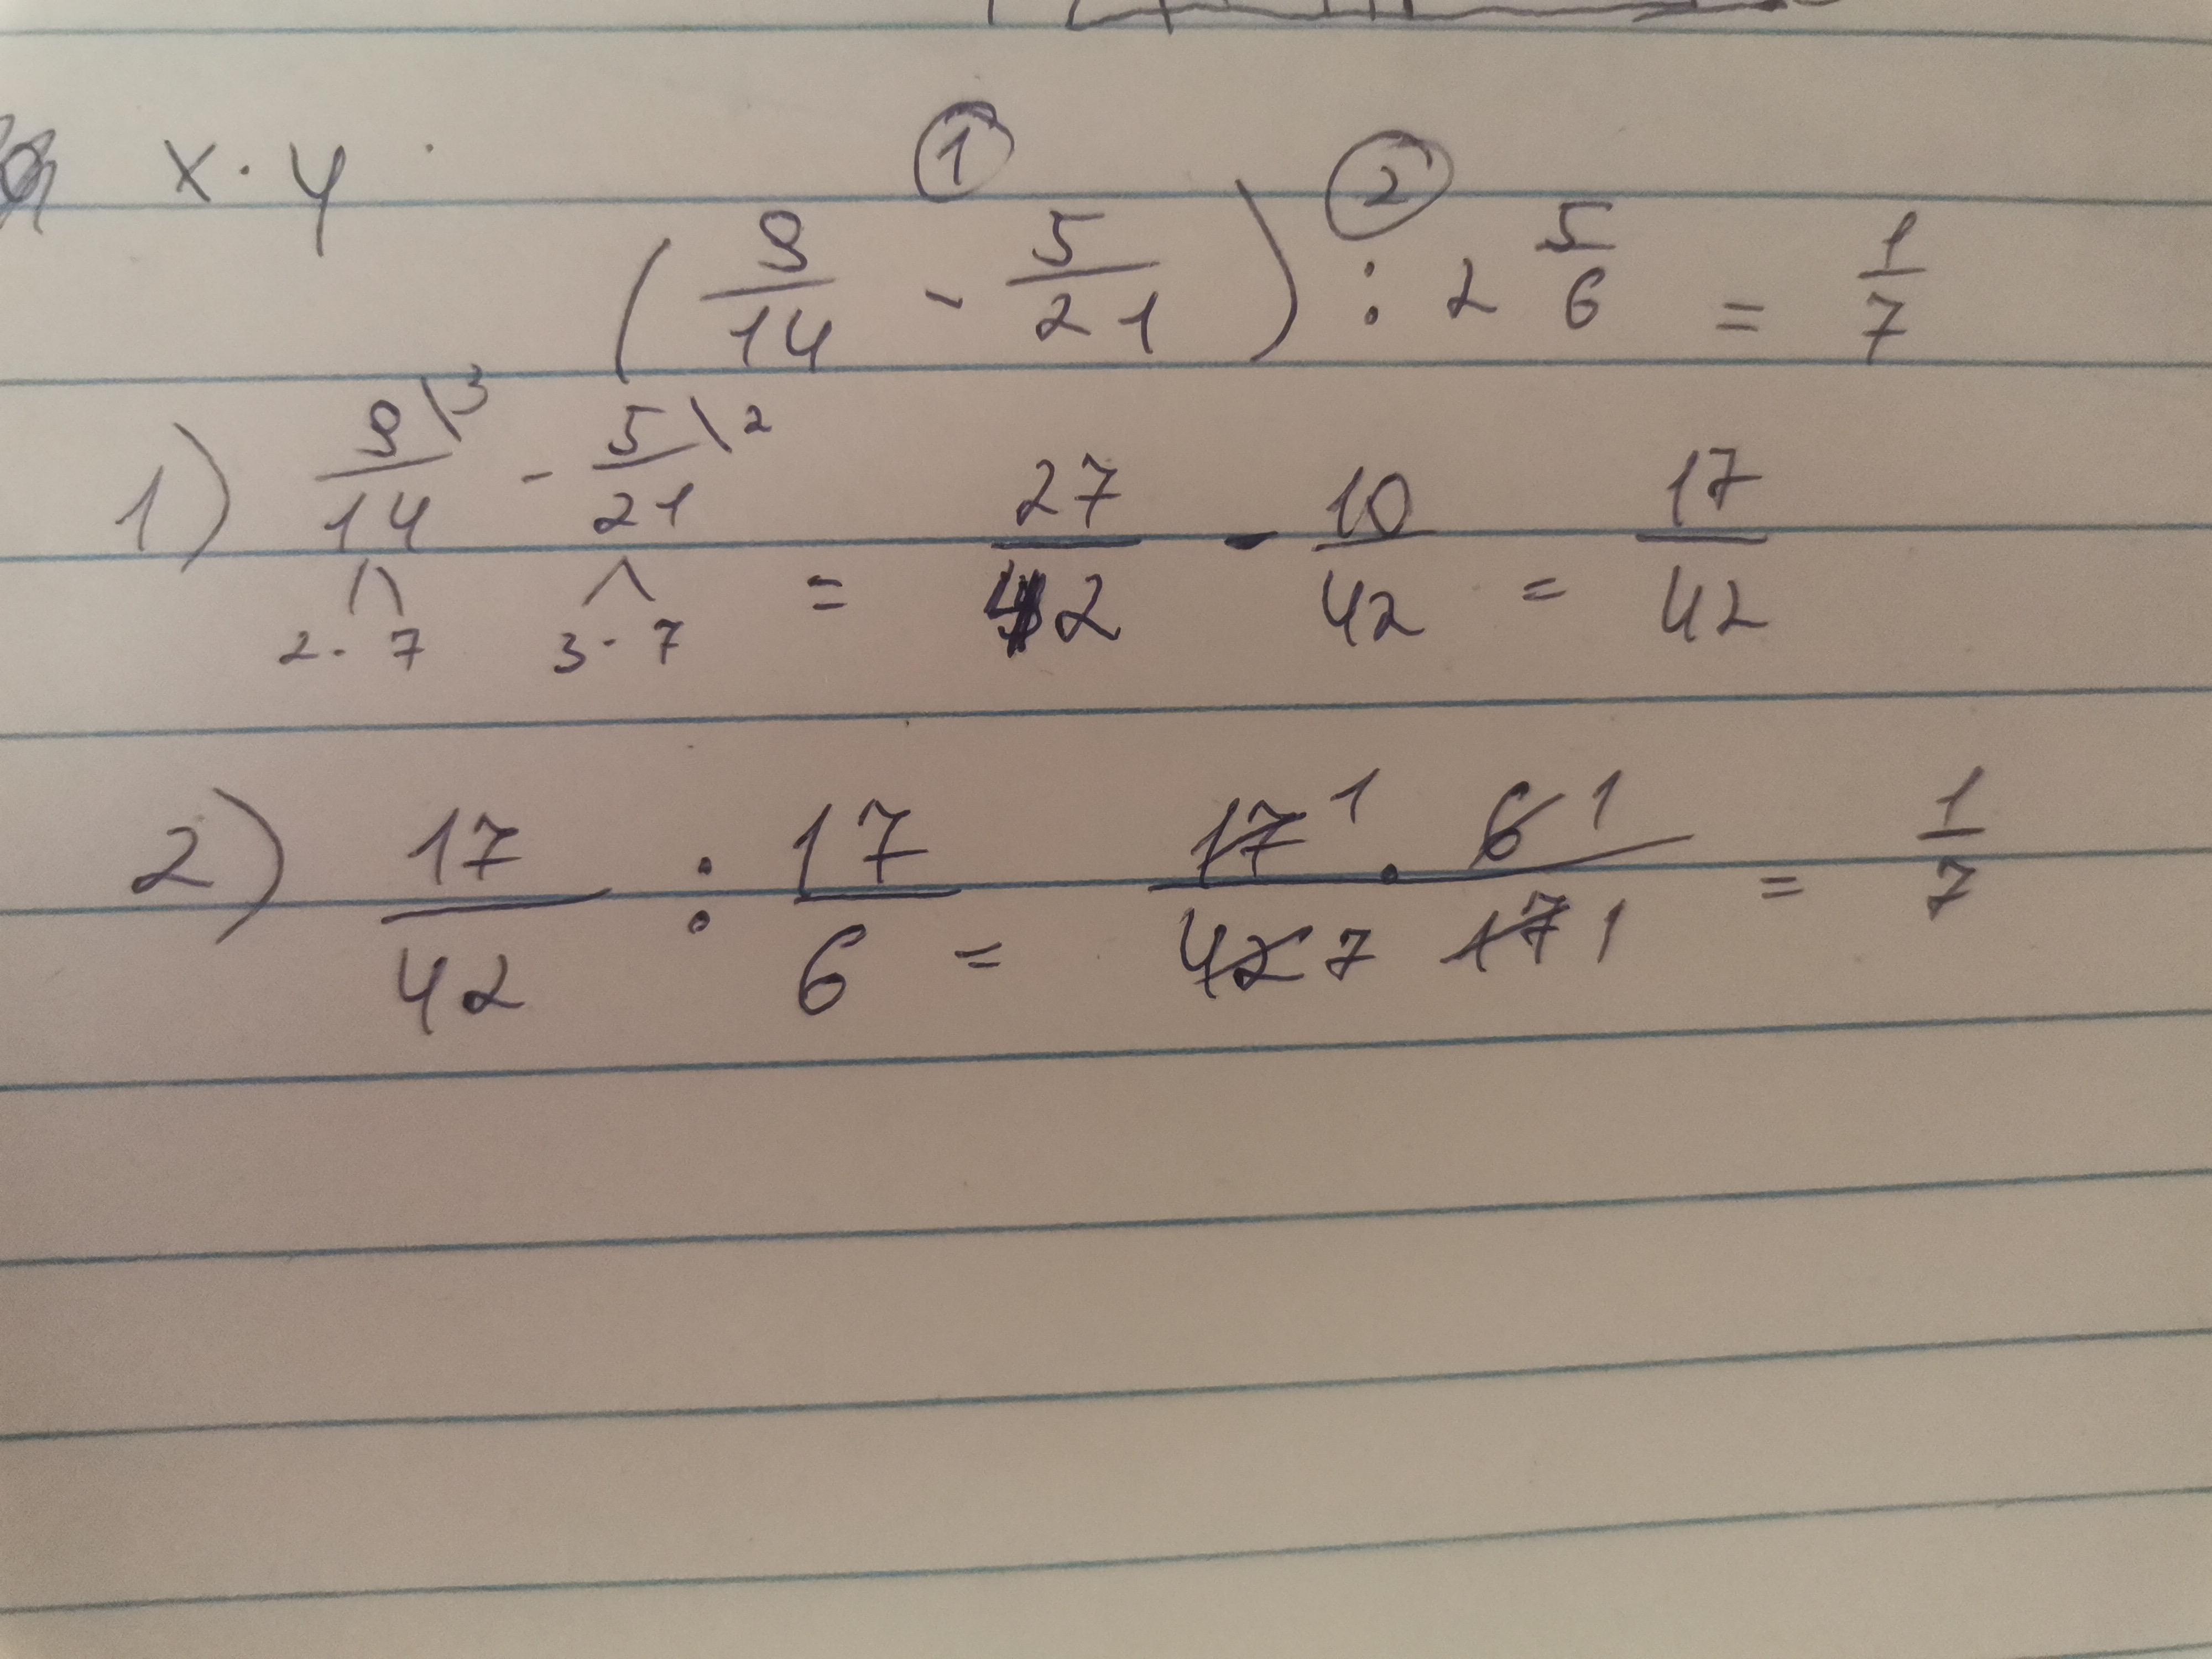 x · y
① ②
(9/14 - 5/21) : 2 5/6 = 1/7
1) 9\3/14 - 5\2/21 = 27/42 - 10/42 = 17/42
2 · 7 3 · 7
2) 17/42 : 17/6 = 17 1 · 6 1/42 7 17 1 = 1/7